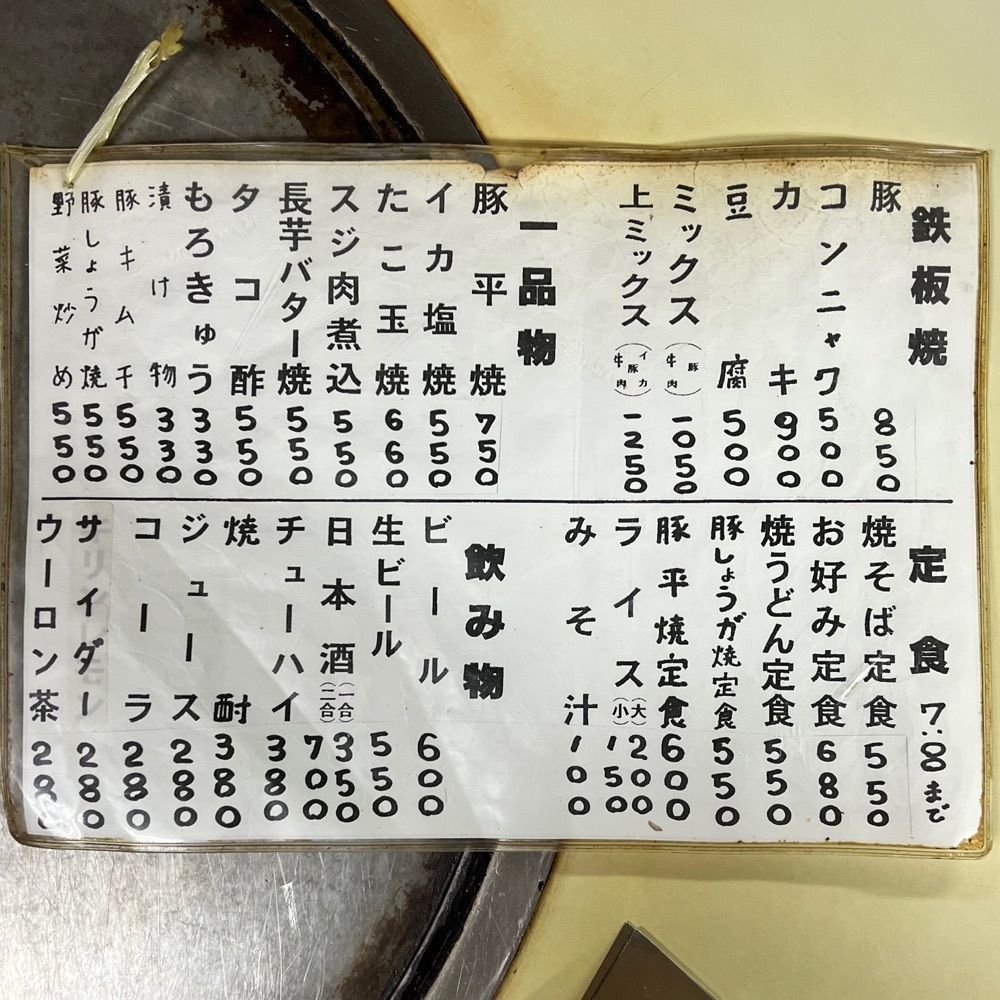 鉄板焼
豚 850
コンニャク 500
カキ 900
豆腐 500
ミックス(豚牛肉) 一050
上ミックス(イカ豚牛肉) 一250
一品物
豚平焼 750
イカ塩焼 550
たこ玉焼 660
スジ肉煮込 550
長芋バター焼 550
タコ酢 550
もろきゅう 330
漬け物 330
豚キムチ 550
豚しょうが焼 550
野菜炒め 550
定食 7:8まで
焼そば定食 550
お好み定食 680
焼うどん定食 550
豚しょうが焼定食 550
豚平焼定食 600
ライス(大) 200
(小) 150
みそ汁 100
飲み物
ビール 600
生ビール 550
日本酒(一合) 350
(二合) 700
チューハイ 380
焼酎 380
ジュース 280
コーラ 280
サイダー 280
ウーロン茶 280